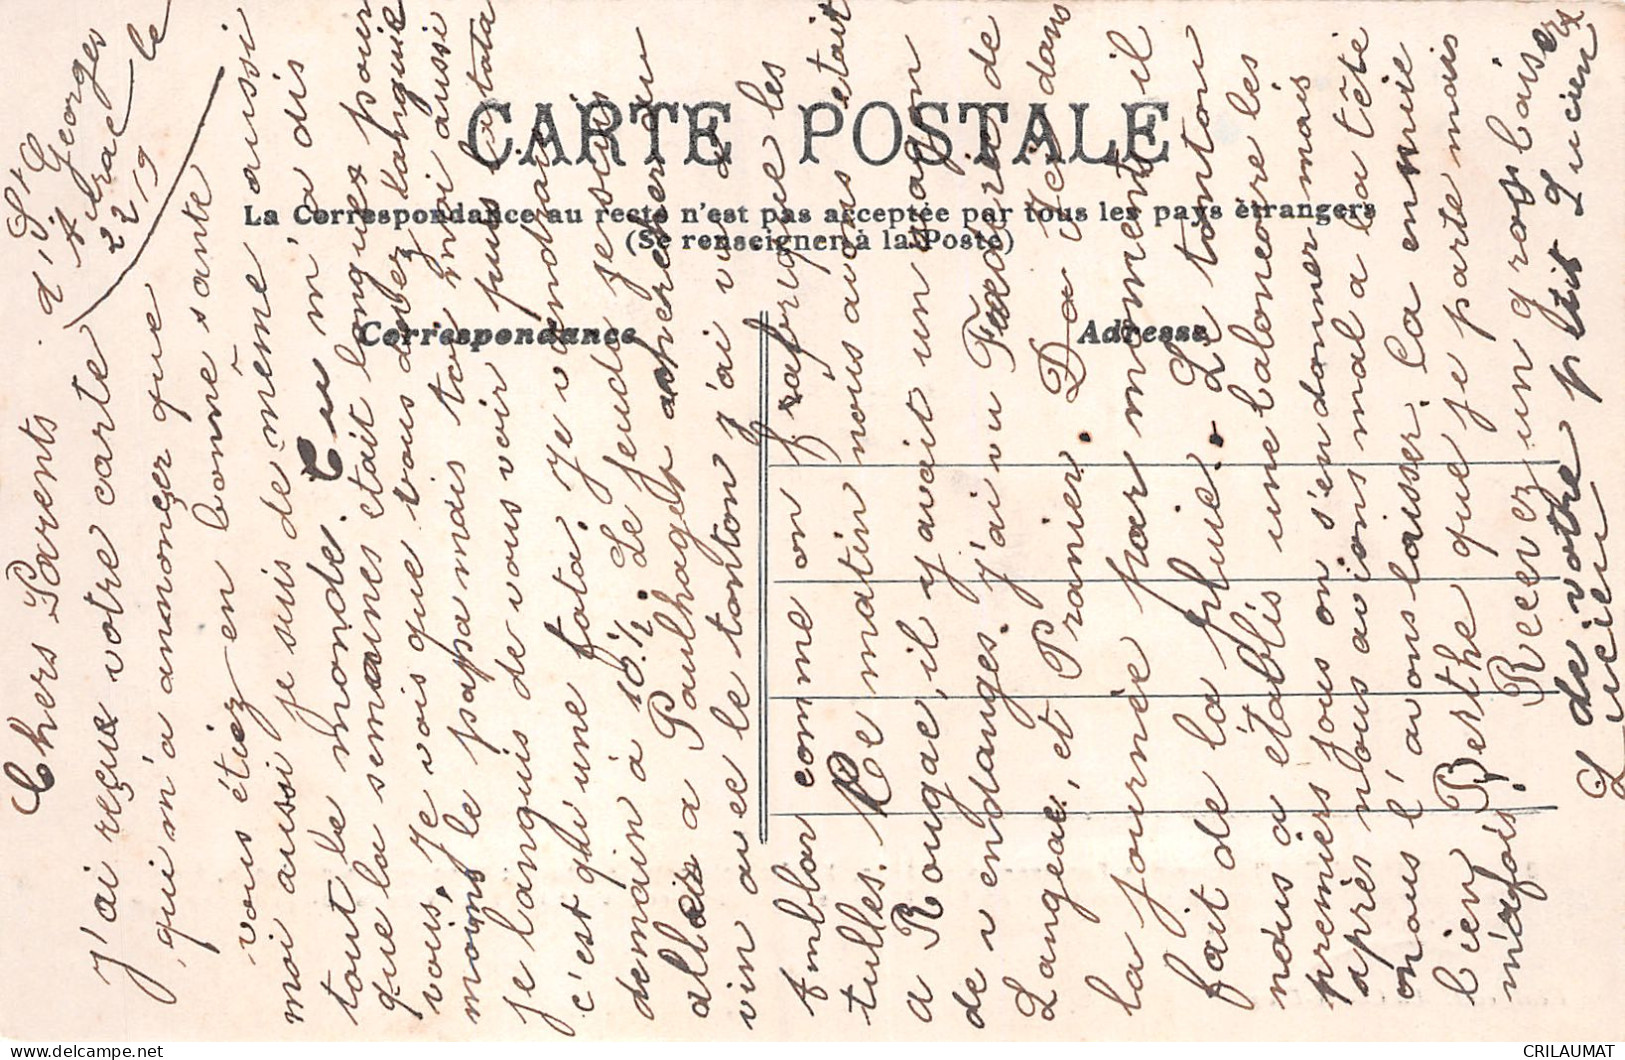 CARTE POSTALE
La Correspondance au recto n'est pas acceptée par tous les pays étrangers
(Se renseigner à la Poste)
Correspondance
Adresse
d'St Georges
le
22 9
Chers Parents
J'ai reçue votre carte
qui m'a anonçer que
vous étiez en bonne sante
moi aussi je suis de même aussi
tout le monde. Tu m'a dis
que la semaines était longues pour
vois, Je vois que vous devez languie
moins le papa mais toi moi aussi
je languis de vous voir puis la tata
c'est qu'une fata. Je vendrai
demain à 10.½. Le Jeudi je suis
allais a Paulhaget acheter du
vin avec le tonton j'ai vu a
Amblar comme on frabrique les
tulles. Le matin nous avons etait
a Rougac, il y avait un wagon
de vendanges. J'ai vu Fredéric de
Langeac, et Pranier. Da Ici dans
la journée par moments il
fait de la pluie. Le tonton
nous a établis une baloncoire les
premiers jous on s'en donner mais
après nous avions mal a la tête
on nous l'avons laisser. La ennuie
bien Berthe que je parte mais
m'afois. Recevez un gros baisers
de votre ptit Lucien
Lucien
CRILAUMAT